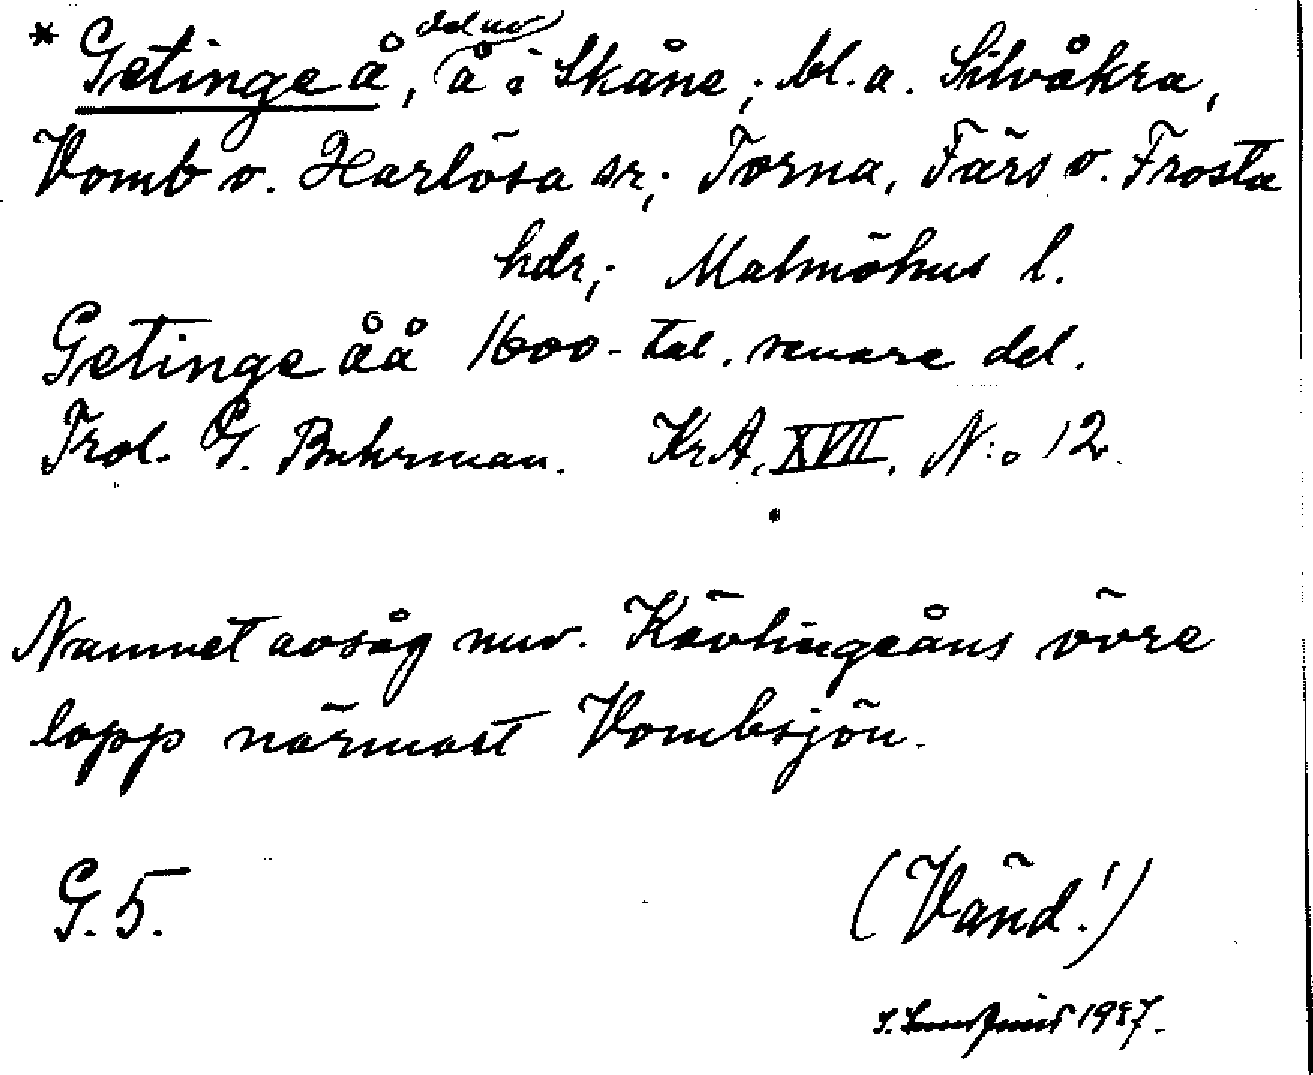 * Getinge å, del av å i Skåne; bl.a. Silvåkra,
Vomb o. Harlösa snr; Torna, Färs o. Frosta
hdr; Malmöhus l.
Getinge åå 1600-tal. senare del.
Trol. G. Buhrman. KrA, XVII, N:o 12.
Namnet avsåg nuv. Kävlingeåns övre
lopp närmast Vombsjön.
G. 5.
(Vänd!)
1987.